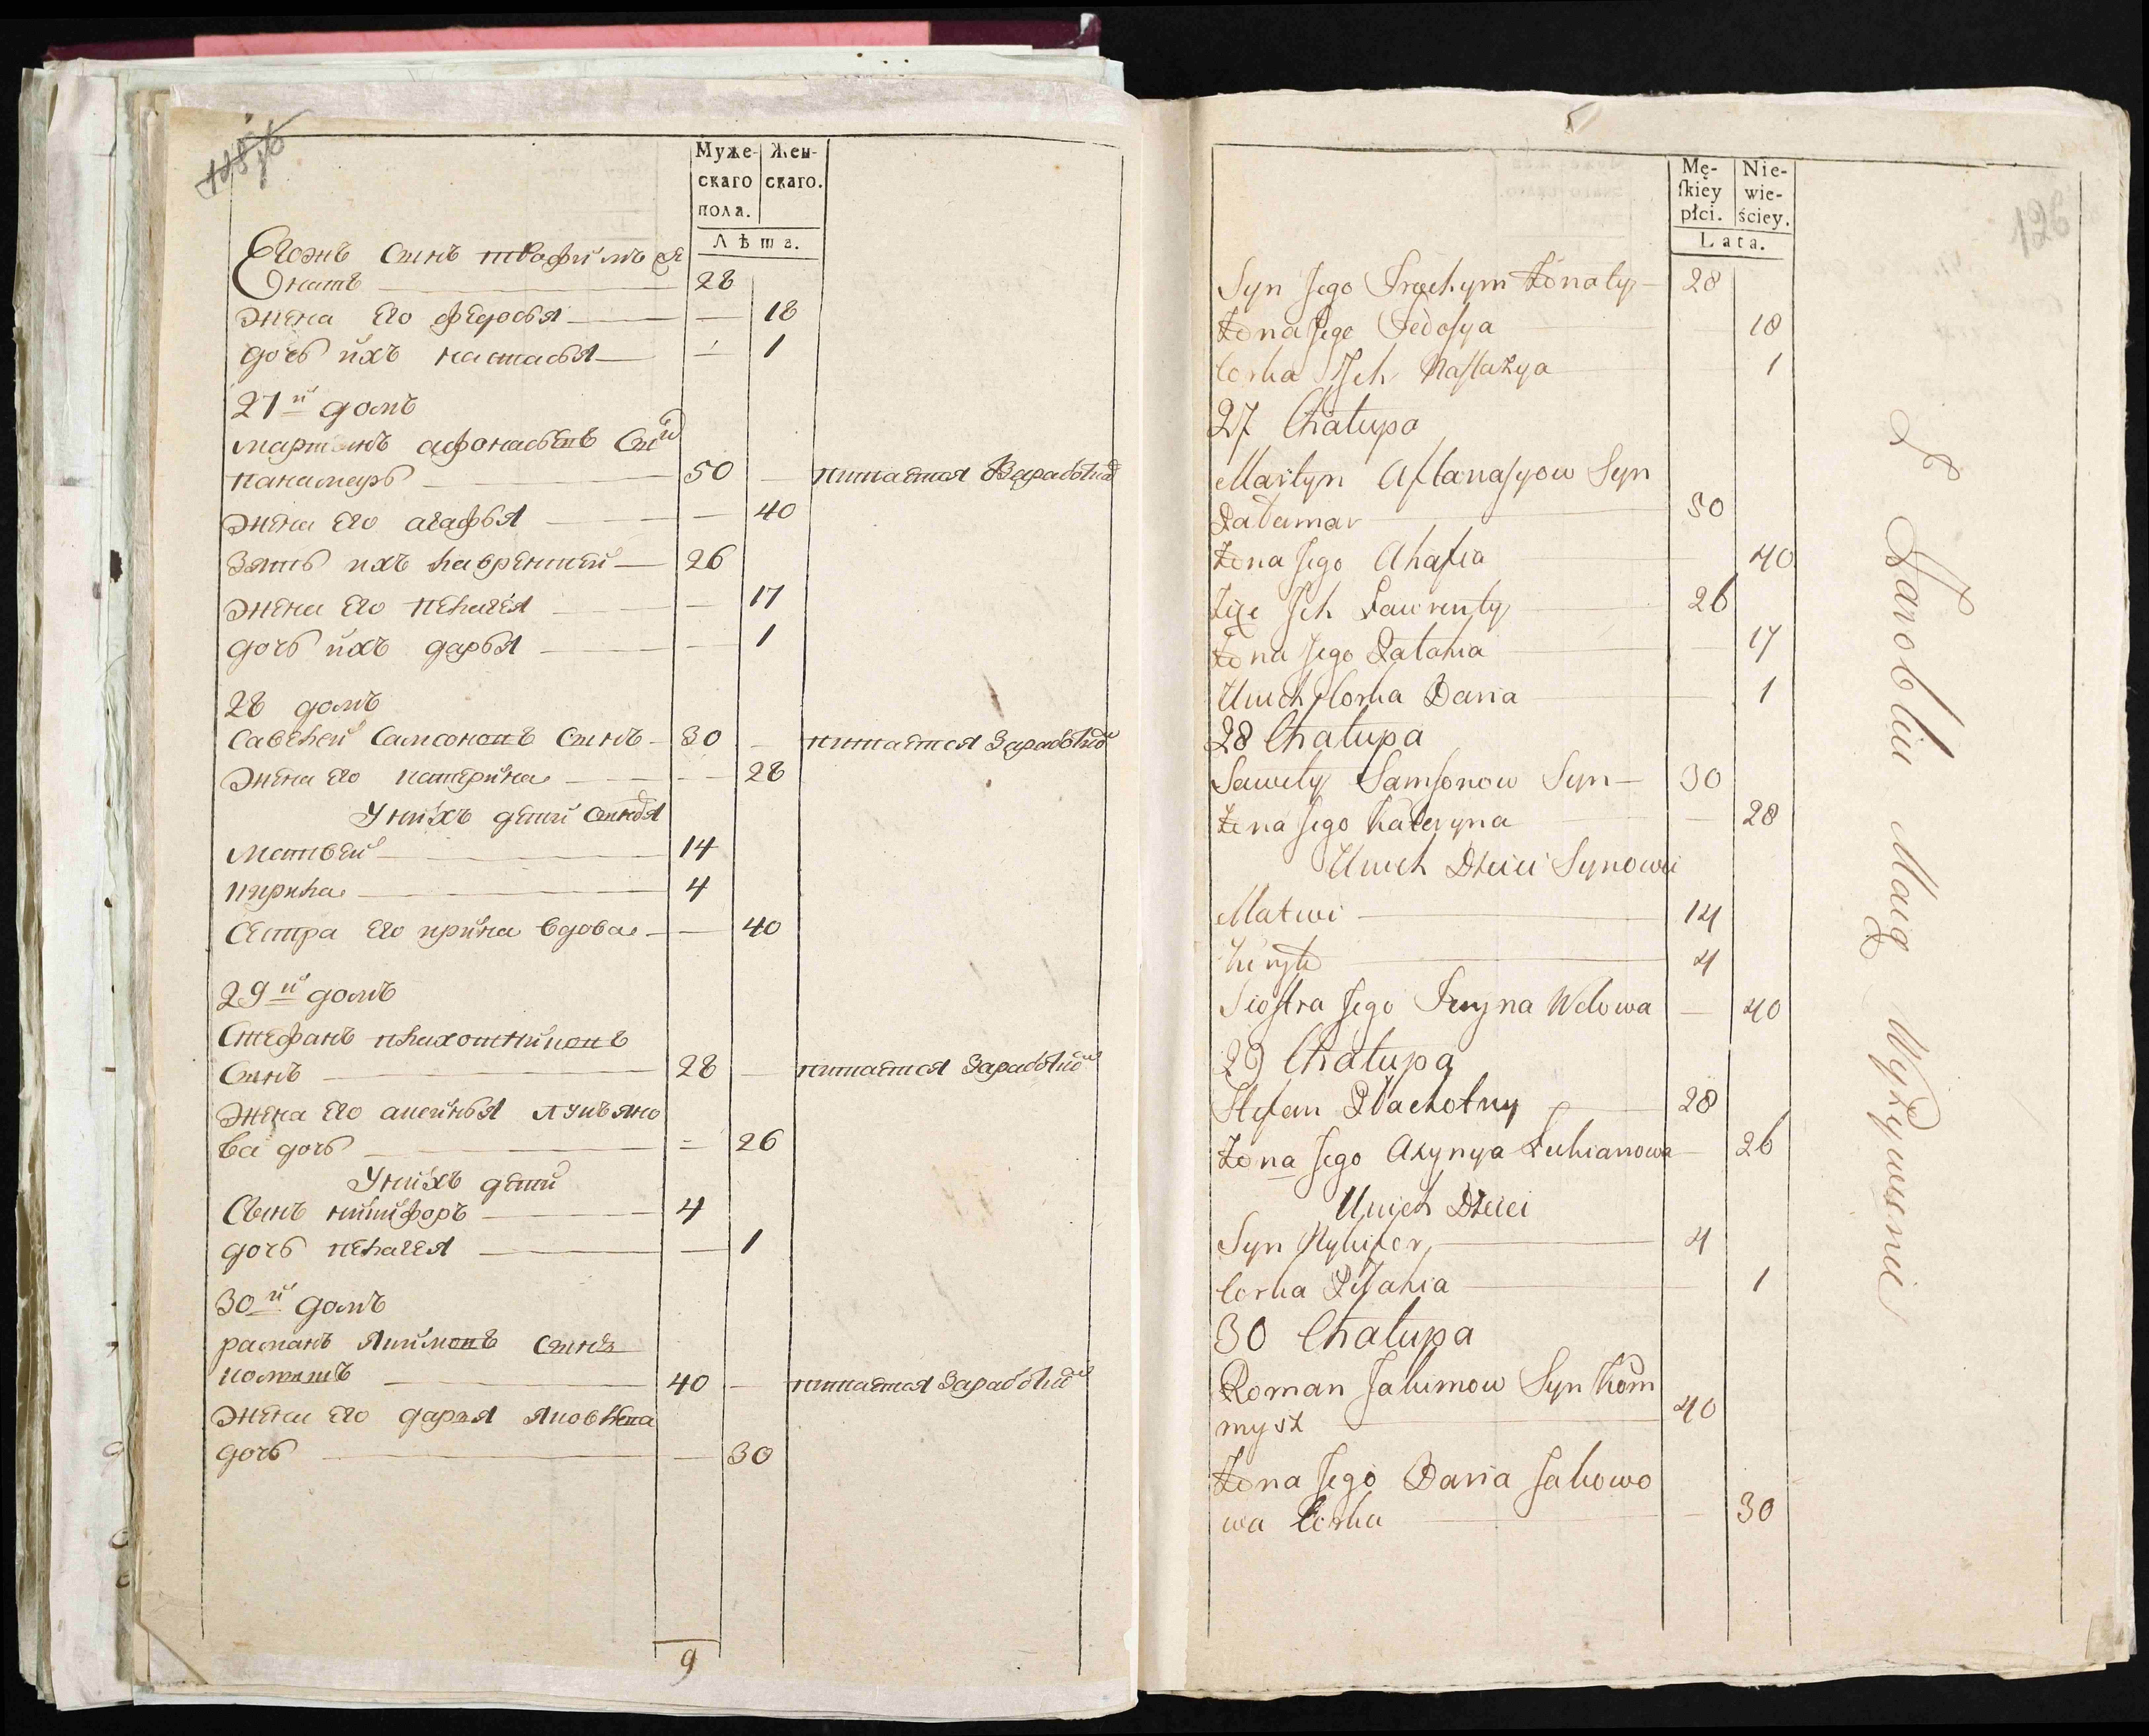 Муже- Жен-
скаго скаго.
пола.
Лѣта.
Егожъ сынъ
жнатъ 28
жена Его федосья — 18
дочь ихъ настасья — 1
27й домъ
мартынъ афонасьевъ Сы
панамарь 50 — питается Заработко
жена Его агафья — 40
зять ихъ лаврентей 26
жена Его пелагея — 17
дочь ихъ дарья — 1
28 домъ
Савелей Самсоновъ Сынъ 30 — питается Заработко
жена Его катерина — 28
У нихъ дети сыновья
Матвей 14
кирила 4
Сестра Его ирина вдова — 40
29й домъ
Стефанъ плахотниковъ
Сынъ 28 — питается Заработко
Жена Его аксинья лукъяно
ва дочь — 26
У нихъ дети
Сынъ никифоръ 4
дочь пелагея — 1
30й домъ
раманъ якимовъ сынъ
40 — питается Заработко
Жена Его даря яковлева
дочь — 30
9
126
Mę- Nie-
ſkiey wie-
płci. ściey.
Lata.
Syn Jego Trochym żonaty 28
Żona Jego Fedosya 18
Corka Jch Nastazya 1
27 Chałupa
Martyn Aftanasyow Syn
Pałamar 50
Żona Jego Ahafia 40
Zięc Jch Ławrenty 26
Żona Jego Pałahia 17
U nich Corka Daria 1
28 Chałupa
Sawely Samsonow Syn 30
Żona Jego Kateryna — 28
U nich Dzieci Synowie
Matwi 14
Kiryło 4
Siostra Jego Iryna Wdowa — 40
29 Chałupa
Stefan Płachotny 28
Żona Jego Axynya Łukianowa 26
U nich Dzieci
Syn Nykifor 4
Corka Pełahia 1
30 Chałupa
Roman Jakimow Syn Kom
mysz 40
Żona Jego Daria Jakowo
wa Corka — 30
Z Zarobku Maią Wyżywienie